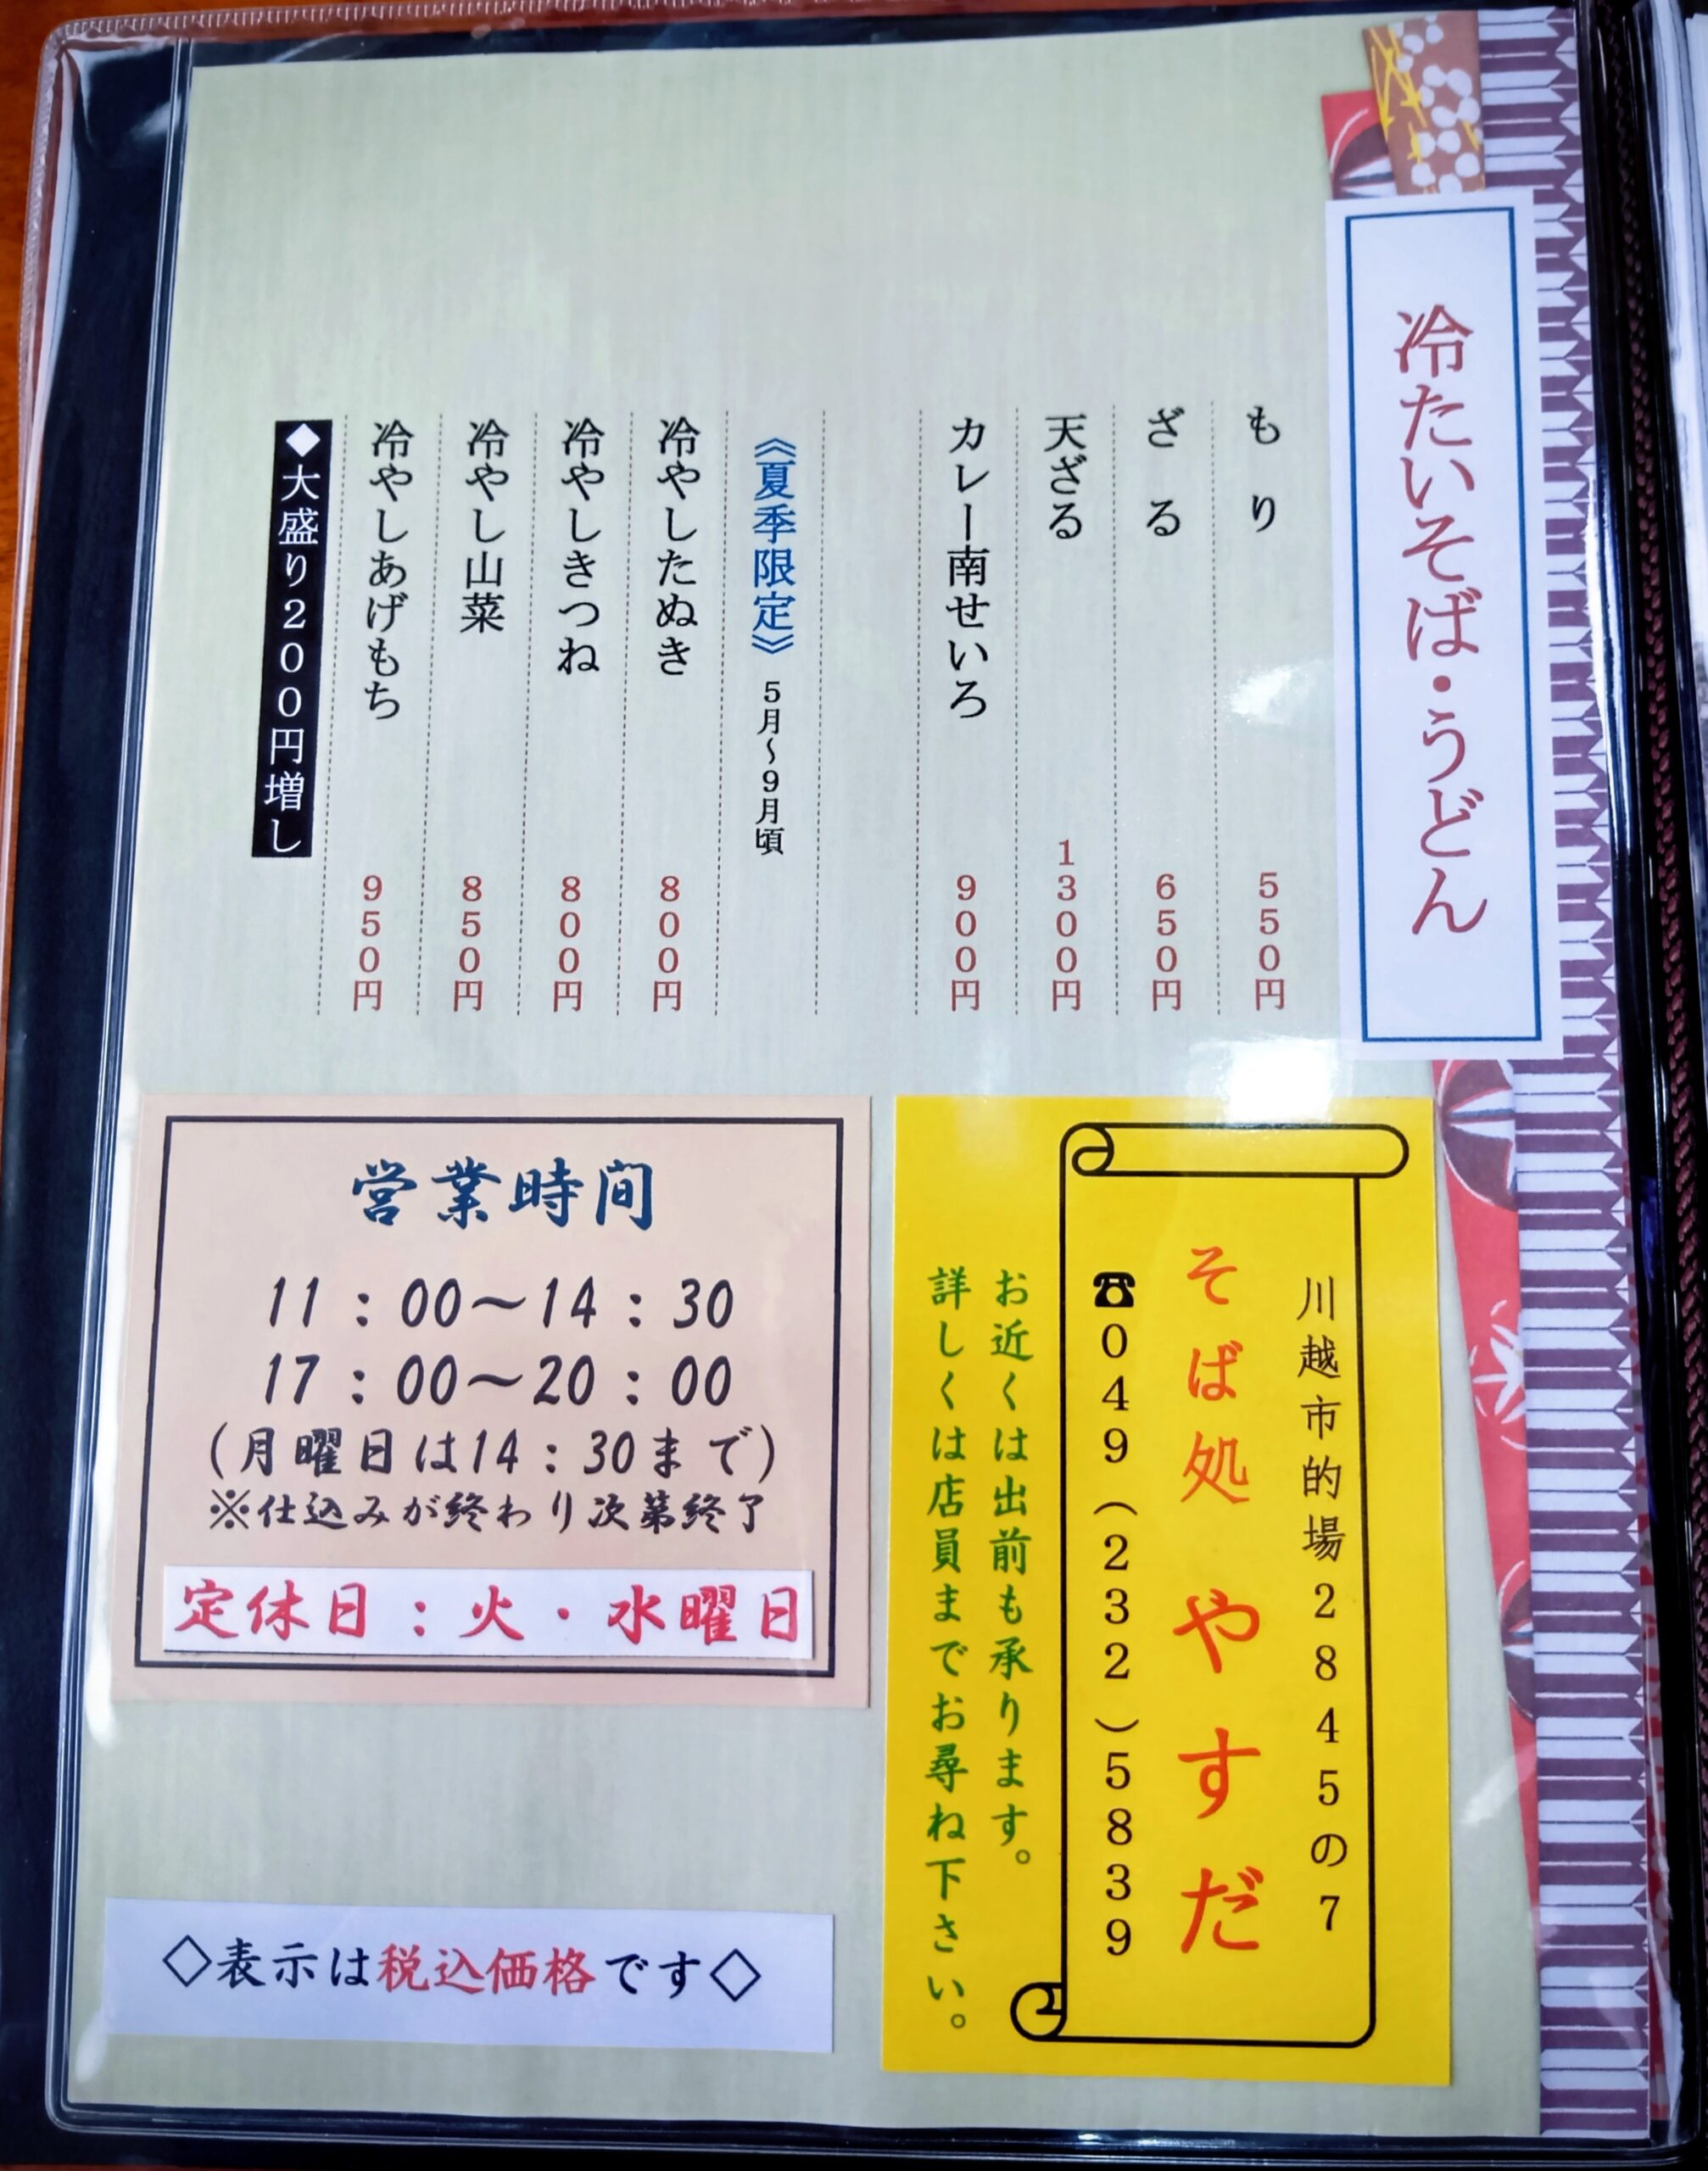 冷たいそば・うどん
もり 550円
ざる 650円
天ざる 1300円
カレー南せいろ 900円
《夏季限定》 5月～9月頃
冷やしたぬき 800円
冷やしきつね 800円
冷やし山菜 850円
冷やしあげもち 950円
◆大盛り200円増し
川越市的場2845の7
そば処 やすだ
☎049(232)5839
お近くは出前も承ります。
詳しくは店員までお尋ね下さい。
営業時間
11：00～14：30
17：00～20：00
(月曜日は14：30まで)
※仕込みが終わり次第終了
定休日：火・水曜日
◇表示は税込価格です◇